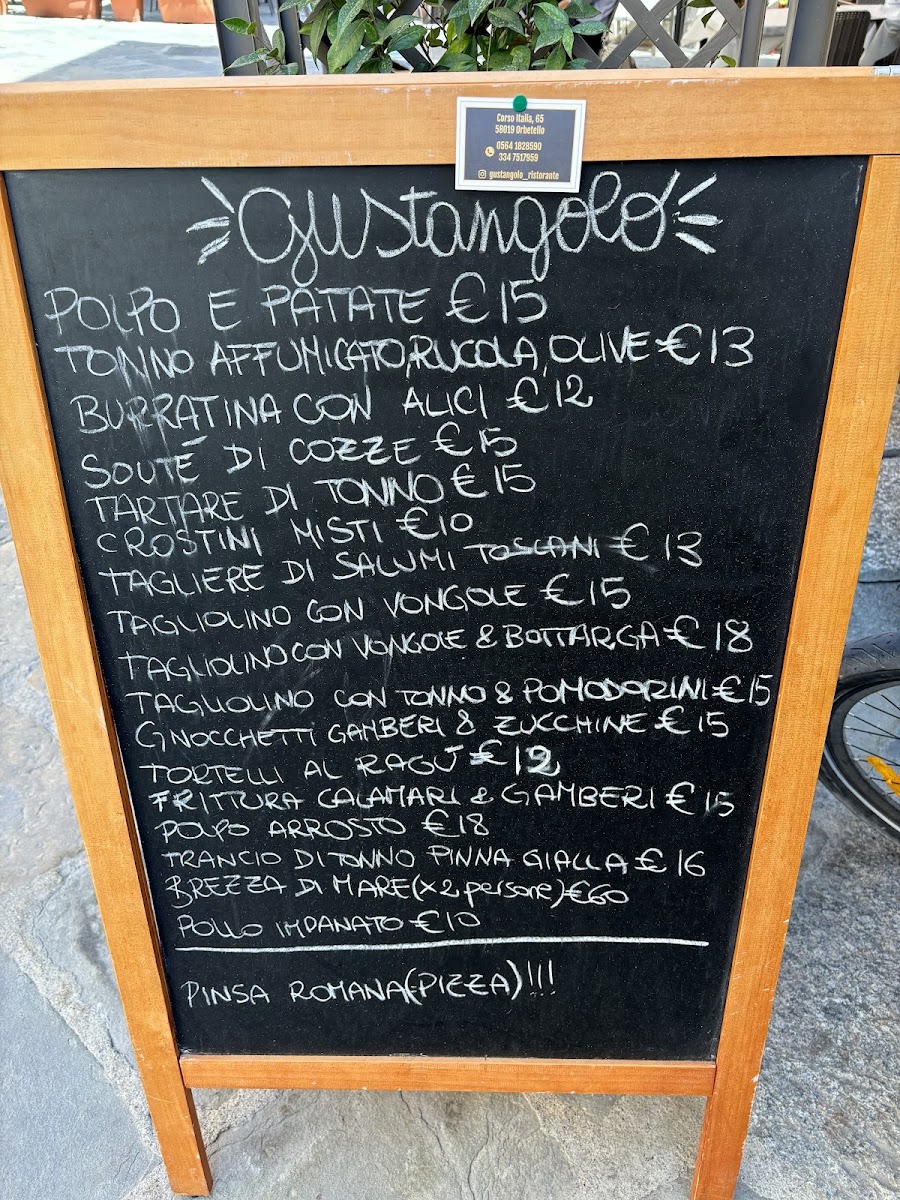 Corso Italia, 65
58019 Orbetello
0564 1828590
334 7517959
gustangolo_ristorante
Gustangolo
POLPO E PATATE €15
TONNO AFFUMICATO, RUCOLA, OLIVE €13
BURRATINA CON ALICI €12
SOUTÉ DI COZZE €15
TARTARE DI TONNO €15
CROSTINI MISTI €10
TAGLIERE DI SALUMI TOSCANI €13
TAGLIOLINO CON VONGOLE €15
TAGLIOLINO CON VONGOLE & BOTTARGA €18
TAGLIOLINO CON TONNO & POMODORINI €15
GNOCCHETTI GAMBERI & ZUCCHINE €15
TORTELLI AL RAGÚ €12
FRITTURA CALAMARI & GAMBERI €15
POLPO ARROSTO €18
TRANCIO DI TONNO PINNA GIALLA €16
BREZZA DI MARE (x2 persone) €60
POLLO IMPANATO €10
PINSA ROMANA (PIZZA)!!!